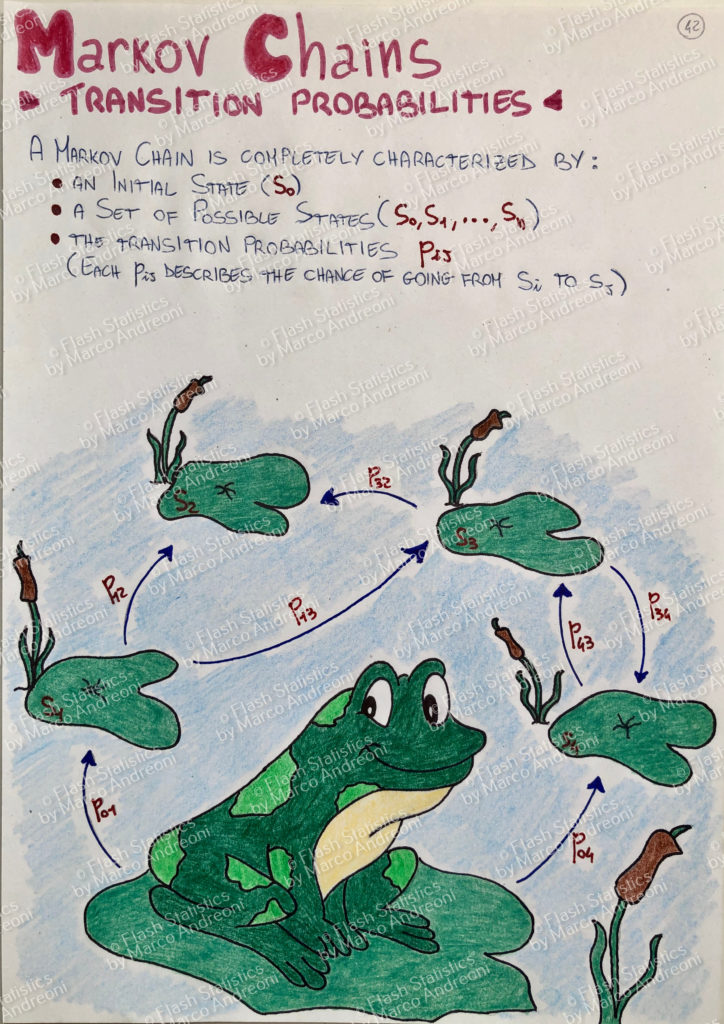 42
Markov Chains
TRANSITION PROBABILITIES
A MARKOV CHAIN IS COMPLETELY CHARACTERIZED BY:
• AN INITIAL STATE (S0)
• A SET OF POSSIBLE STATES (S0, S1, ..., Sn)
• THE TRANSITION PROBABILITIES Pij
(EACH Pij DESCRIBES THE CHANCE OF GOING FROM Si TO Sj)
P32
S2
S3
P12
P13
P43
P34
S1
P01
P04
© Flash Statistics
by Marco Andreoni